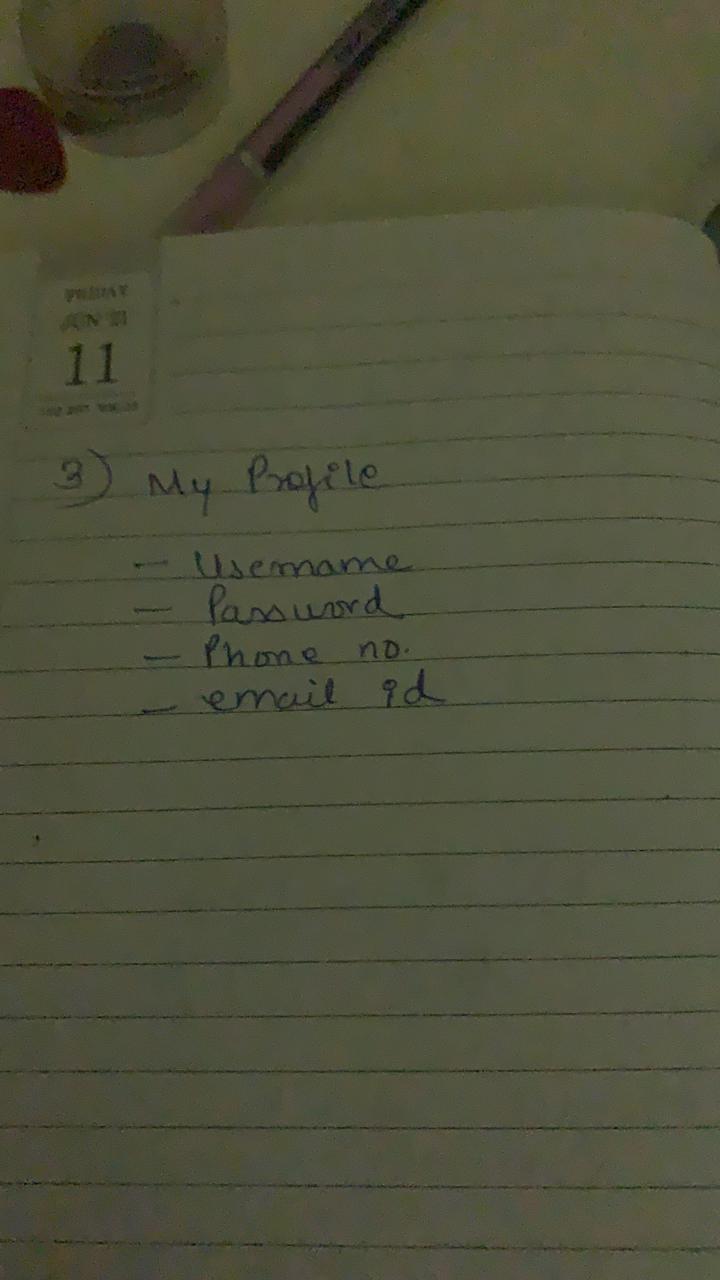 FRIDAY
JUN '21
11
3) My Profile
- Username
- Password
- Phone no.
- email id